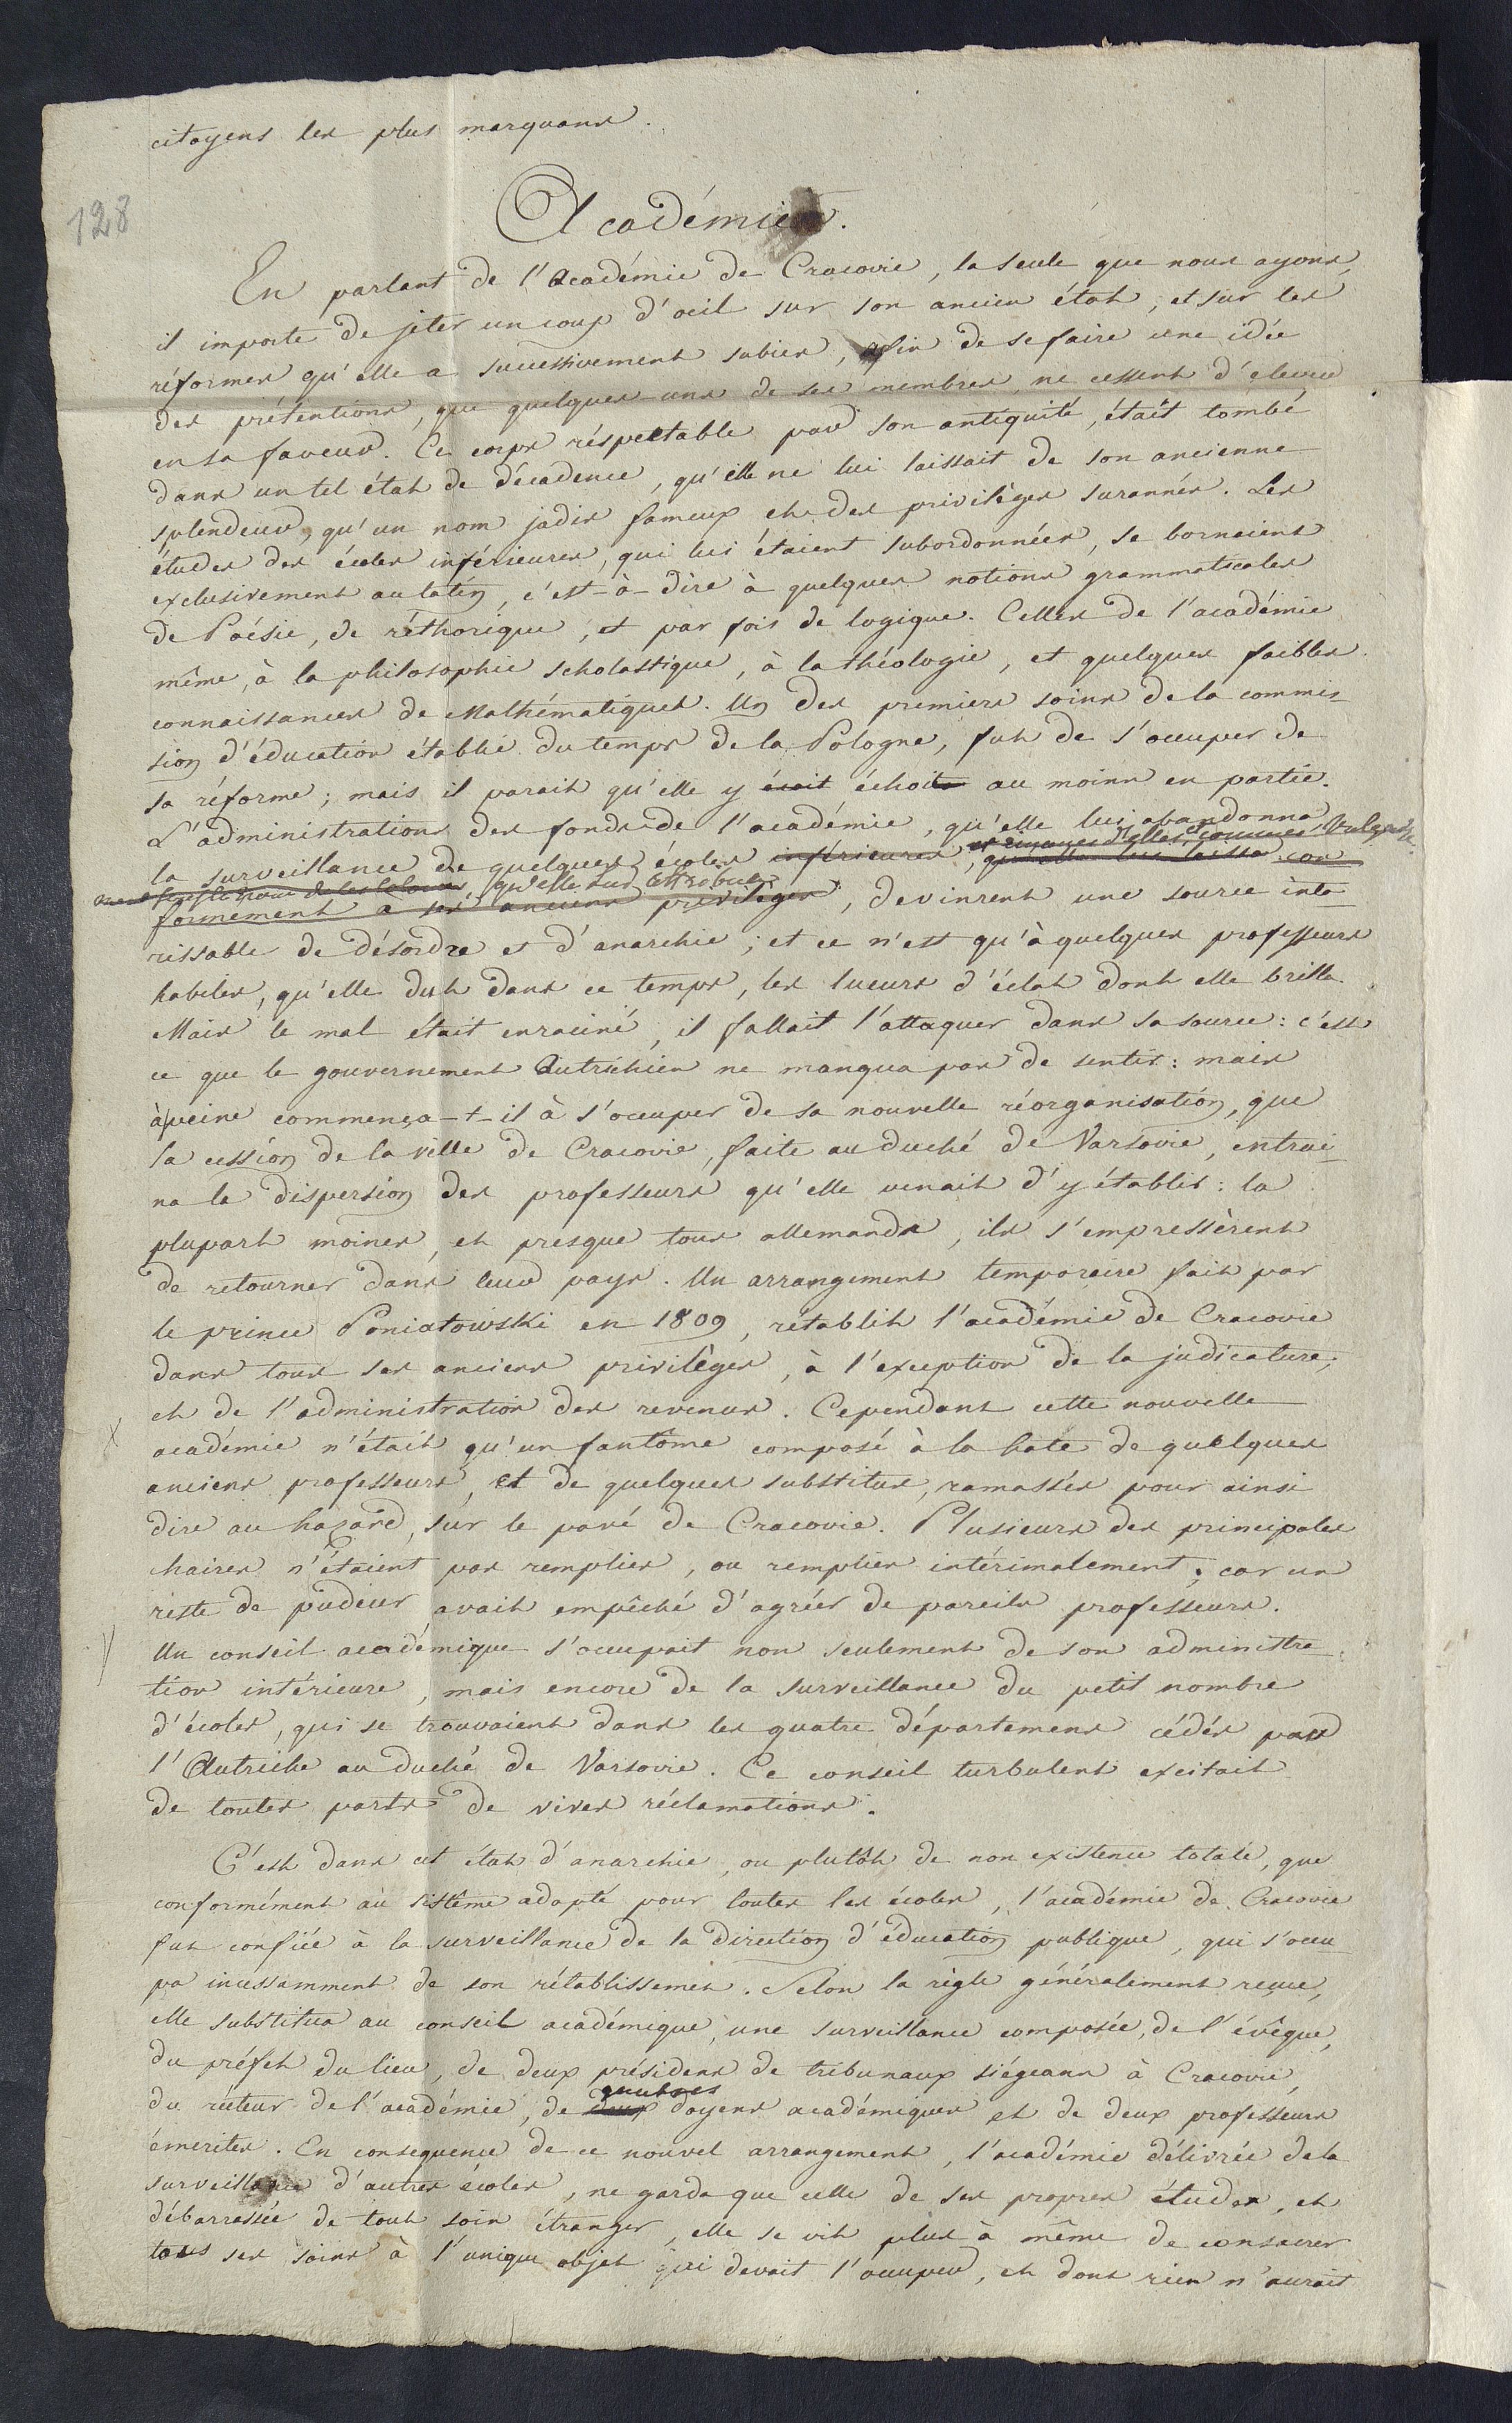 citoyens les plus marquans.
128
Académie.
En parlant de l'Académie de Cracovie, la seule que nous ayons,
il importe de jeter un coup d'oeil sur son ancien état, et sur les
réformes qu'elle a successivement subies, afin de se faire une idée
des prétentions, que quelques uns de ses membres ne cessent d'elever
en sa faveur. Ce corps réspectable par son antiquité, était tombé
dans un tel état de décadence, qu'elle ne lui laissait de son ancienne
splendeur, qu'un nom jadis fameux et des privilèges surannés. Les
études des écoles inférieures, qui lui étaient subordonnées, se bornaient
exclusivement au latin, c'est-à-dire à quelques notions grammaticales
de Poésie, de réthorique, et par fois de logique. Celles de l'académie
même, à la philosophie scholastique, à la théologie, et quelques faibles
connaissances de Mathématiques. Un des premiers soins de la commis-
sion d'éducation établie du temps de la Pologne, fut de s'occuper de
sa réforme; mais il parait qu'elle y échoua au moins en partie.
L'administration des fonds de l'académie, qu'elle lui abandonna
la surveillance de quelques écoles inférieures, qu'elle lui laissa con
qu'elle lui attribua
formement à ses anciens privilèges, devinrent une source inta-
rissable de désordre et d'anarchie; et ce n'est qu'à quelques professeurs
habiles, qu'elle dut dans ce temps, les lueurs d'éclat dont elle brilla.
Mais le mal était enraciné, il fallait l'attaquer dans sa source: c'est
ce que le gouvernement Autrichien ne manqua pas de sentir: mais
à peine commença-t-il à s'occuper de sa nouvelle réorganisation, que
la cession de la ville de Cracovie, faite au duché de Varsovie, entrai-
na la dispersion des professeurs qu'elle venait d'y établir: la
plupart moines, et presque tous allemands, ils s'empressèrent
de retourner dans leur pays. Un arrangement temporaire fait par
le prince Poniatowski en 1809, rétablit l'académie de Cracovie
dans tous ses anciens privilèges, à l'exception de la judicature,
et de l'administration des revenus. Cependant cette nouvelle
académie n'était qu'un fantôme composé à la hate de quelques
anciens professeurs, et de quelques substituts, ramassés pour ainsi
dire au hazard, sur le pavé de Cracovie. Plusieurs des principales
chaires n'étaient pas remplies, ou remplies intérimalement; car un
reste de pudeur avait empêché d'agréer de pareils professeurs.
Un conseil académique s'occupait non seulement de son administra-
tion intérieure, mais encore de la surveillance du petit nombre
d'écoles, qui se trouvaient dans les quatre départemens cédés par
l'Autriche au duché de Varsovie. Ce conseil turbulent excitait
de toutes parts de vives réclamations.
C'est dans cet état d'anarchie, ou plutôt de non existence totale, que
conformément au sistême adopté pour toutes les écoles, l'académie de Cracovie
fut confiée à la surveillance de la direction d'éducation publique, qui s'occu
pa incessamment de son rétablissement. Selon la règle généralement reçue,
elle substitua au conseil académique, une surveillance composée, de l'évêque,
du préfet du lieu, de deux présidens de tribunaux siégeans à Cracovie,
quatres
du recteur de l'académie, de deux doyens académiques et de deux professeurs
émerites. En consequence de ce nouvel arrangement, l'académie délivrée de la
surveillance d'autres écoles, ne garda que celle de ses propres études, et
débarrassée de tout soin étranger, elle se vit plus à même de consacrer
tous ses soins à l'unique objet qui devait l'occuper, et dont rien n'aurait